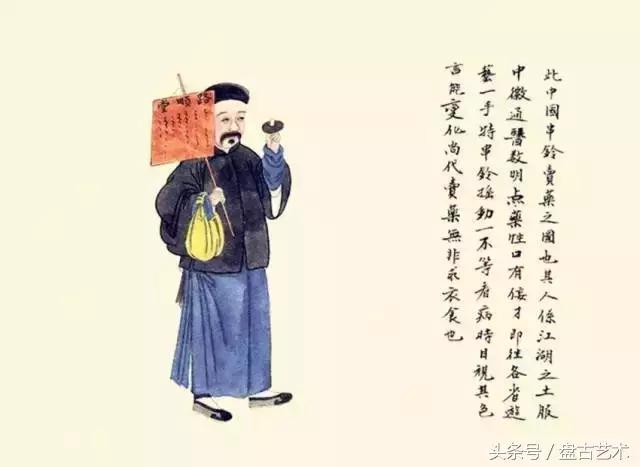 此中國串鈴賣藥之圖也其人係江湖之士服
中微通醫数明点藥性口有倿才即往各省遊
藝一手持串鈴搖動一不等看病時目視其色
言能變化尚代賣藥無非求衣食也
路順堂
头条号 / 盘古艺术